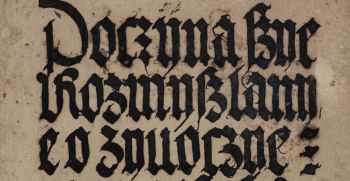 Poczyna ßye
Rozmyßlany
e o zywoczye